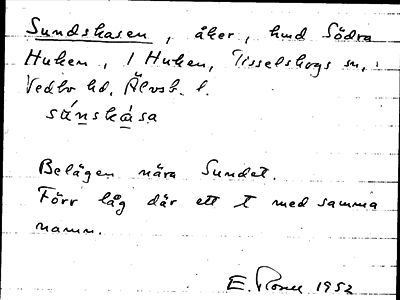 Sundskasen, åker, hmd Södra
Huken, 1 Huken, Tisselskogs sn,
Vedbo hd. Älvsb. l.
súnskása
Belägen nära Sundet.
Förr låg där ett t med samma
namn.
E. 1952